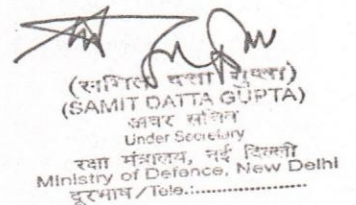 (समित दत्ता गुप्ता)
(SAMIT DATTA GUPTA)
अवर सचिव
Under Secretary
रक्षा मंत्रालय, नई दिल्ली
Ministry of Defence, New Delhi
दूरभाष/Tele.:.....................